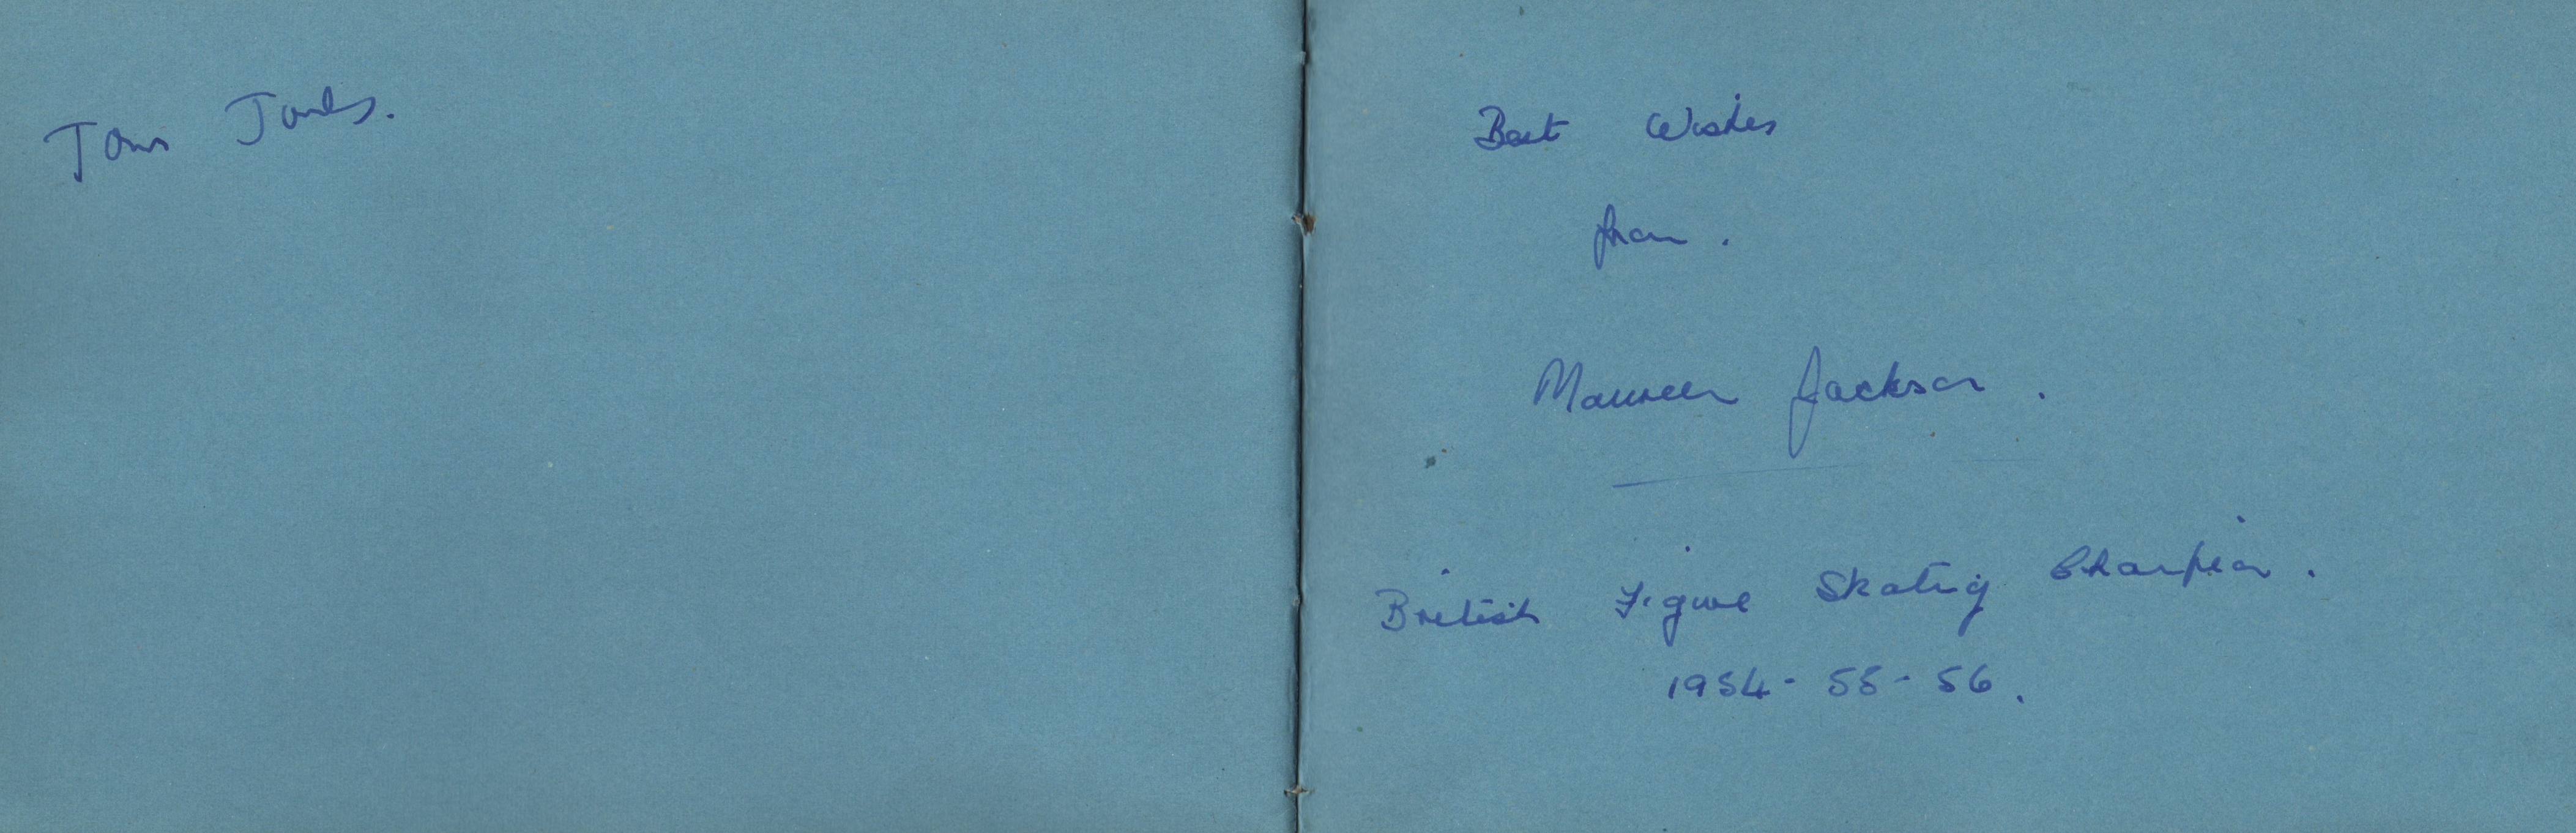 Tom Jones.
Best Wishes
from.
Maureen Jackson.
British Figure Skating Champion.
1954-55-56.